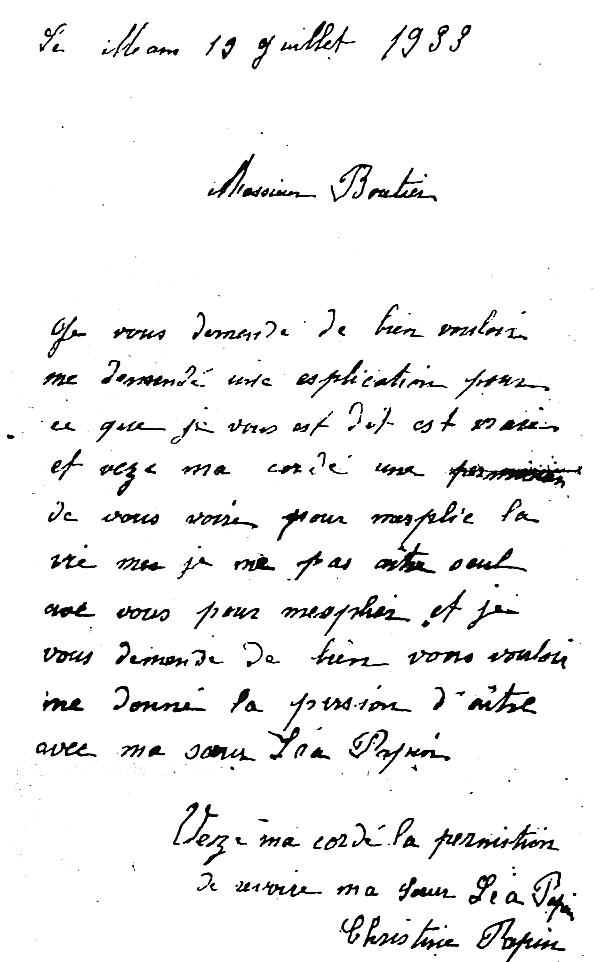 Le Mans 19 Juillet 1933
Monsieur Boutier
Je vous demende de bien vouloir
me demendé une esplication pour
ce que je vous est dit est vraie
et veze ma cordé une
de vous voire pour mesplic la
vie mes je me pas aître seul
ave vous pour mesplier et je
vous demende de bien vous vouloir
me donné la pirsion d'aître
avec ma sœur Léa Papin
Vesze ma cordé la permistion
de revoire ma sœur Léa Papin
Christine Papin